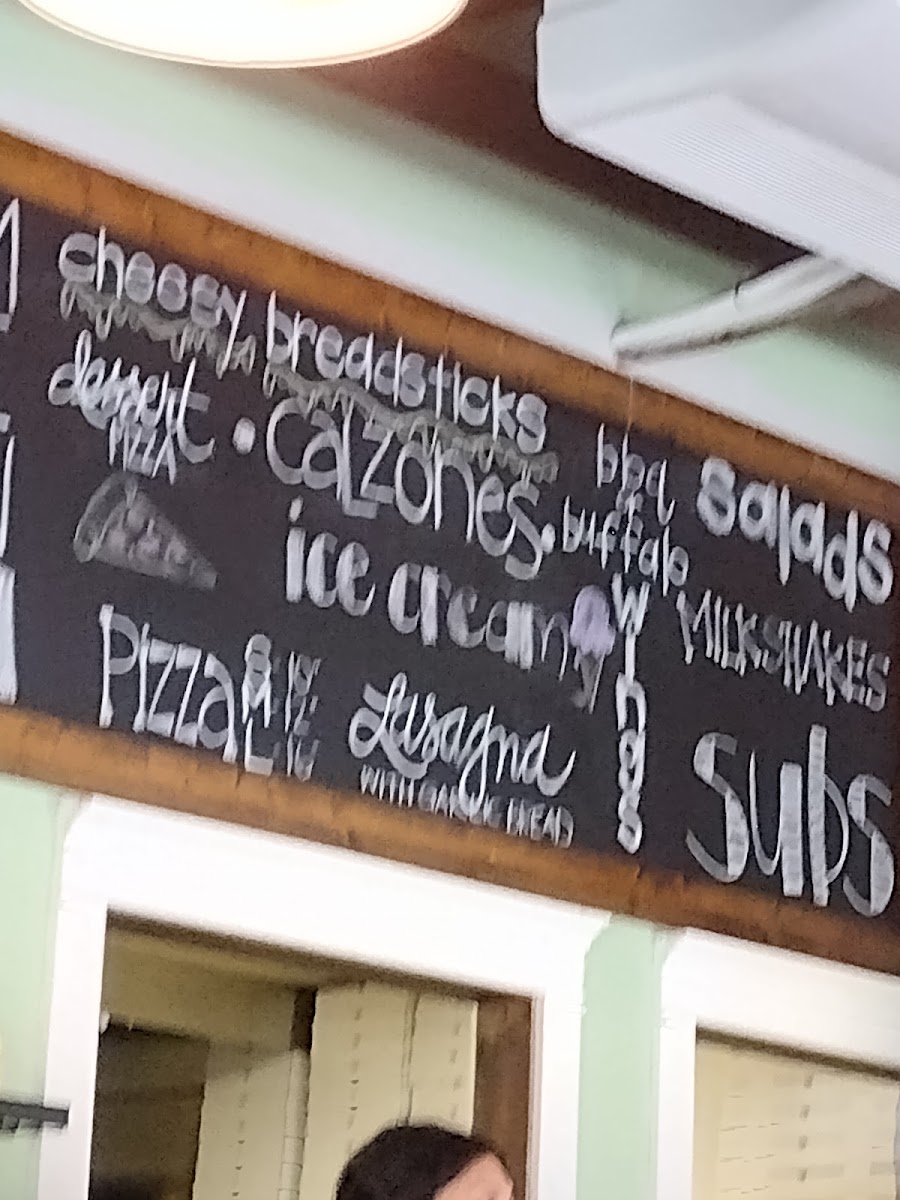 cheesy breadsticks
dessert
PIZZA
• calzones •
ice cream
Pizza
Lasagna
WITH GARLIC BREAD
bbq
buffalo
wings
salads
MILKSHAKES
subs